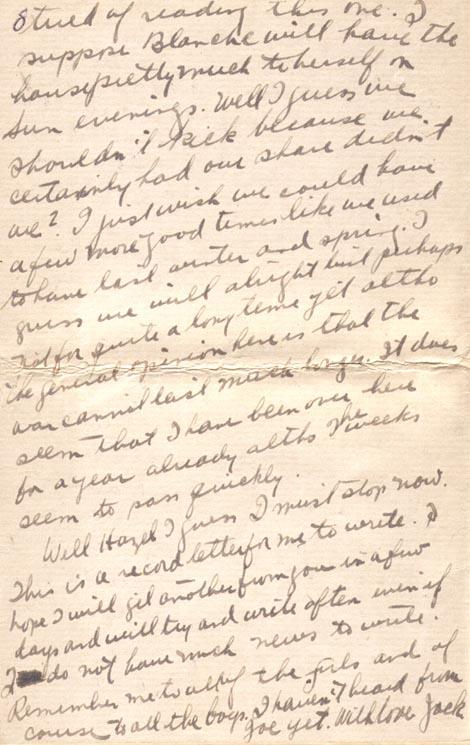 8
tired of reading this one. I
suppose Blanche will have the
house pretty much to herself on
Sun evenings. Well I guess we
shouldn't kick because we
certainly had our share didn't
we? I just wish we could have
a few more good times like we used
to have last winter and spring. I
guess we will alright but perhaps
not for quite a long time yet altho
the general opinion here is that the
war cannot last much longer. It does
seem that I have been over here
for a year already altho the weeks
seem to pass quickly.
Well Hazel I guess I must stop now.
This is a record letter for me to write. I
hope I will get another from you in a few
days and will try and write often even if
I do not have much news to write.
Remember me to all of the girls and of
course to all the boys. I haven't heard from
Joe yet. With love Jack